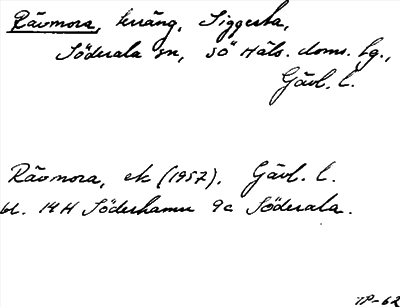 Rävmora, terräng, Siggesta,
Söderala sn, SÖ Häls. doms. hg.,
Gävl. l.
Rävmora, ek (1957). Gävl. l.
bl. 14H Söderhamn 9c Söderala.
TP-62